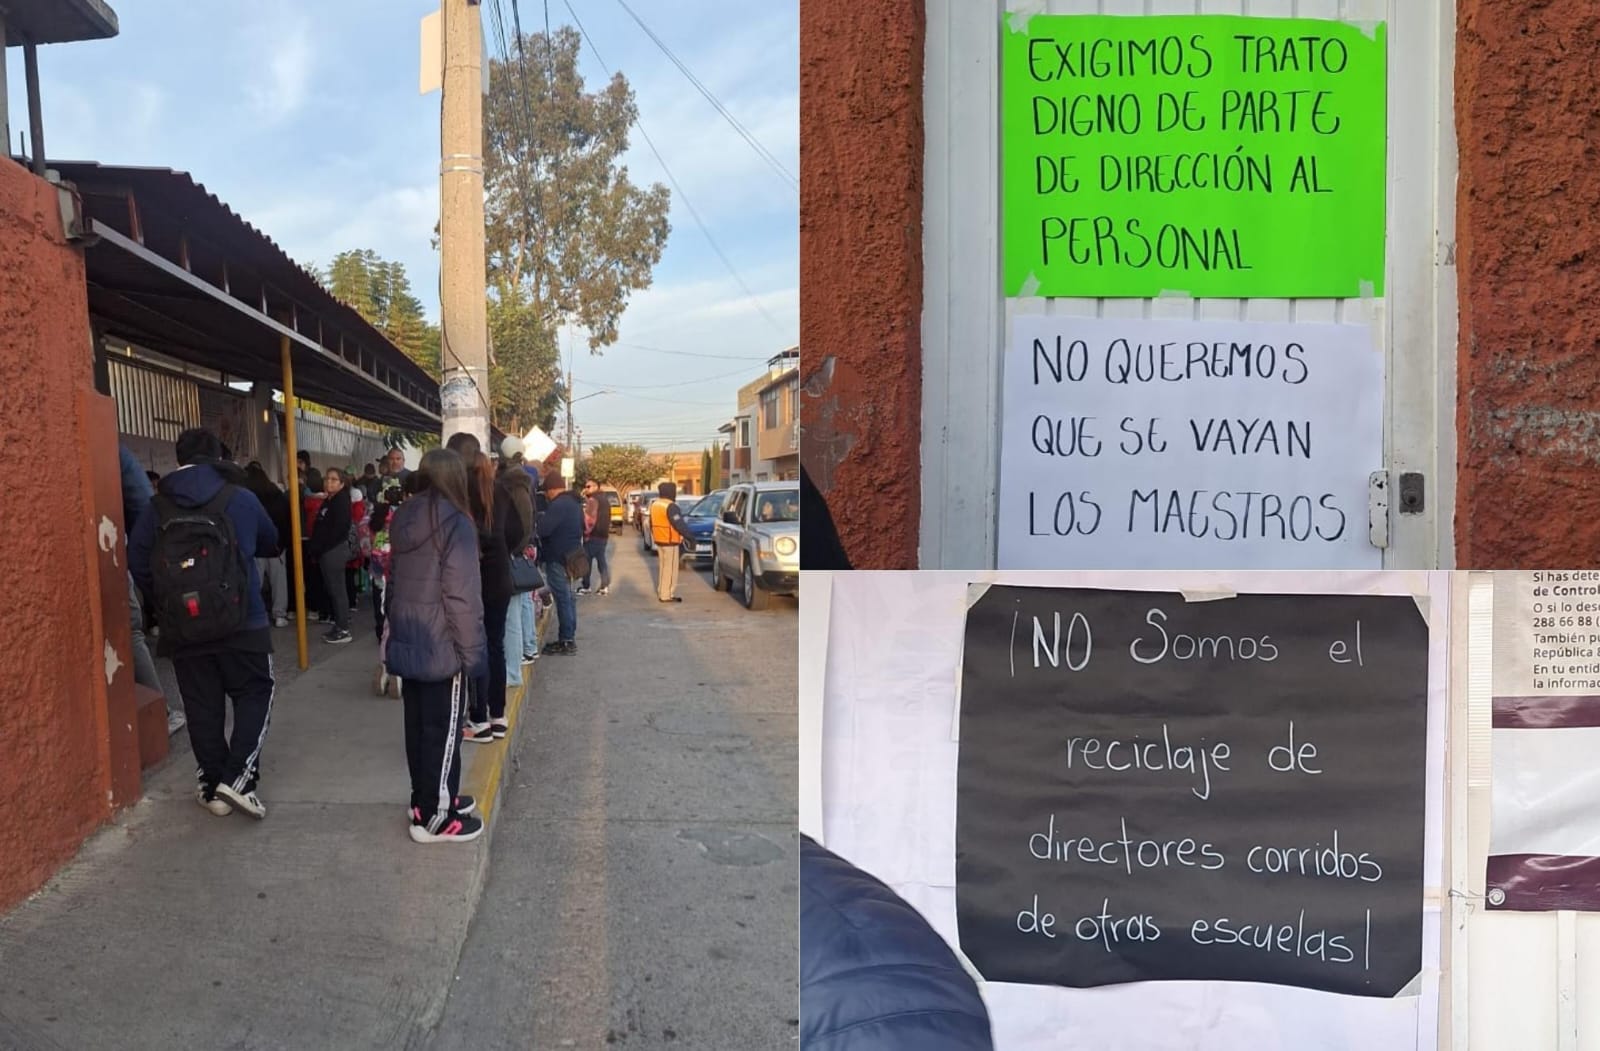 EXIGIMOS TRATO
DIGNO DE PARTE
DE DIRECCIÓN AL
PERSONAL
NO QUEREMOS
QUE SE VAYAN
LOS MAESTROS
¡NO Somos el
reciclaje de
directores corridos
de otras escuelas!
Si has
de Control
O si lo
288 66 88
También
República
En tu
la